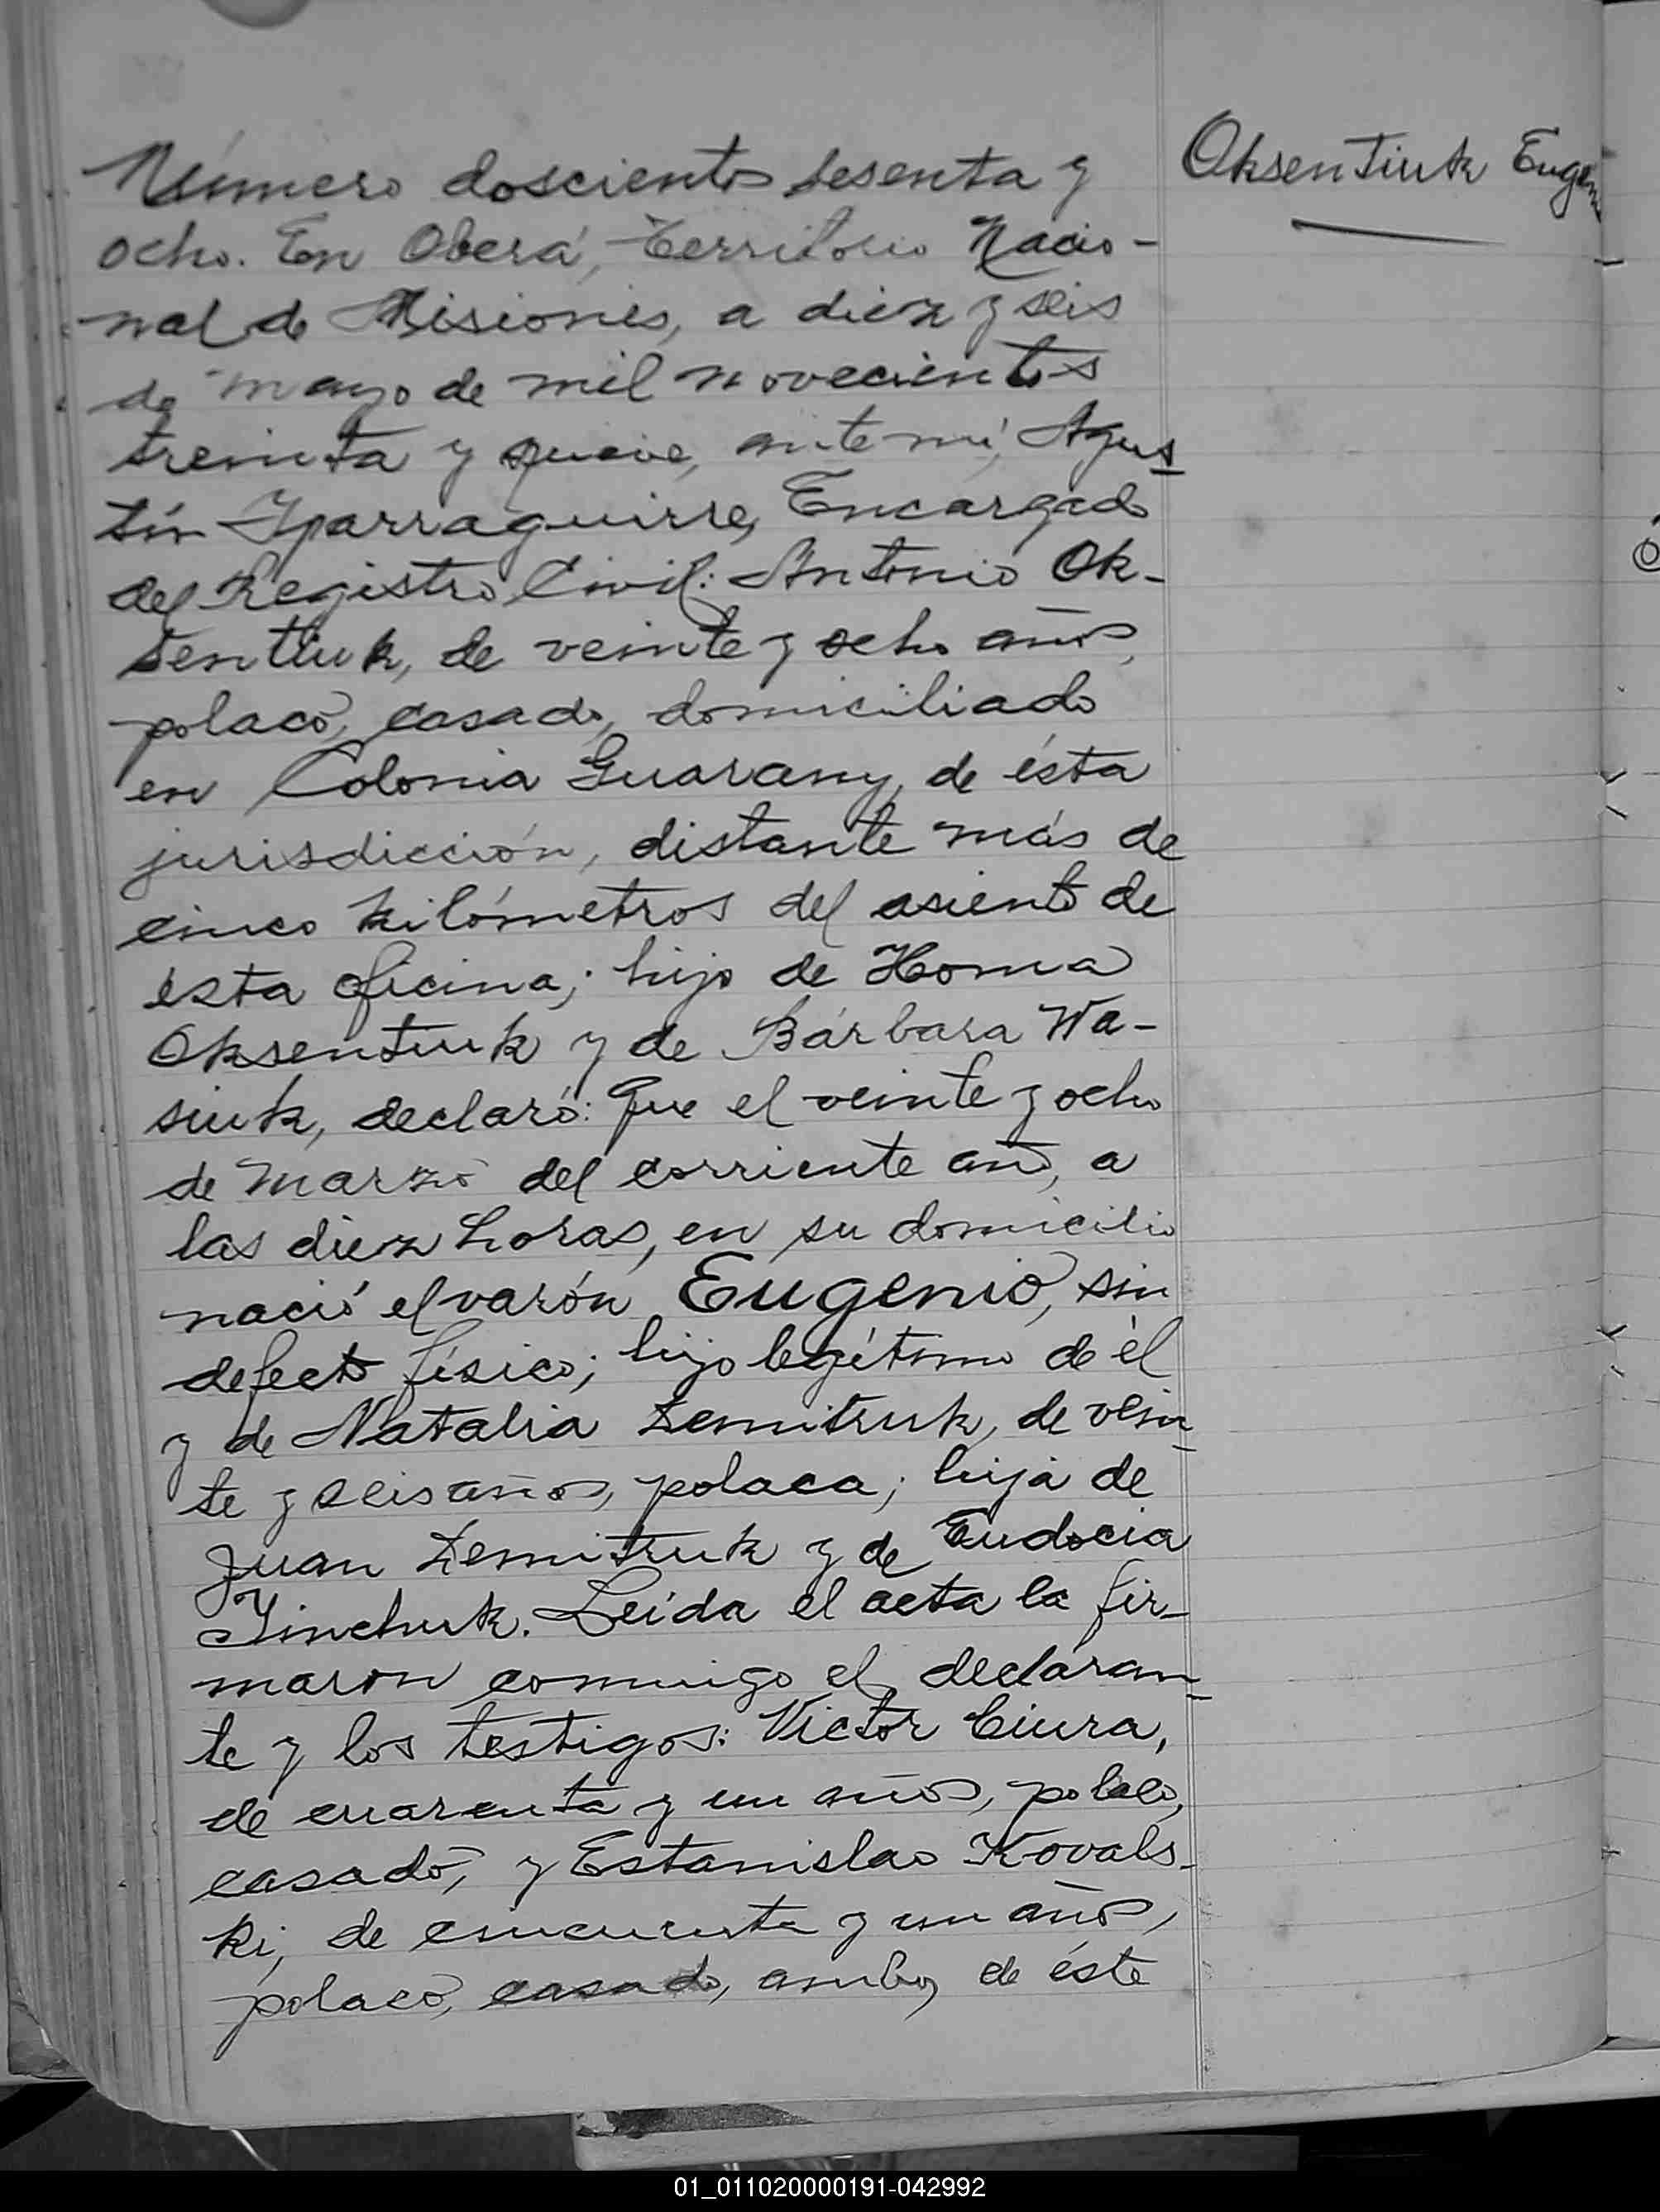 Número doscientos sesenta y
ocho. En Oberá, Territorio Nacio-
nal de Misiones, a diez y seis
de mayo de mil novecientos
treinta y nueve, ante mí, Agus-
tín Yparraguirre, Encargado
del Registro Civil: Antonio Ok-
sentiuk, de veinte y ocho años,
polaco, casado, domiciliado
en Colonia Guarany, de ésta
jurisdicción, distante más de
cinco kilómetros del asiento de
esta oficina; hijo de Homa
Oksentiuk y de Bárbara Wa-
siuk, declaró: Que el veinte y ocho
de Marzo del corriente año, a
las diez horas, en su domicilio
nació el varón Eugenio, sin
defecto físico; hijo legítimo de él
y de Natalia Demitruk, de vein-
te y seis años, polaca; hija de
Juan Demitruk y de Eudocia
Yinchuk. Leída el acta la fir-
maron conmigo el declaran-
te y los testigos: Victor Ciura,
de cuarenta y un años, polaco,
casado, y Estanislao Kovals-
ki, de cincuenta y un años,
polaco, casado, ambos de éste
Oksentiuk Eugen
01_011020000191-042992